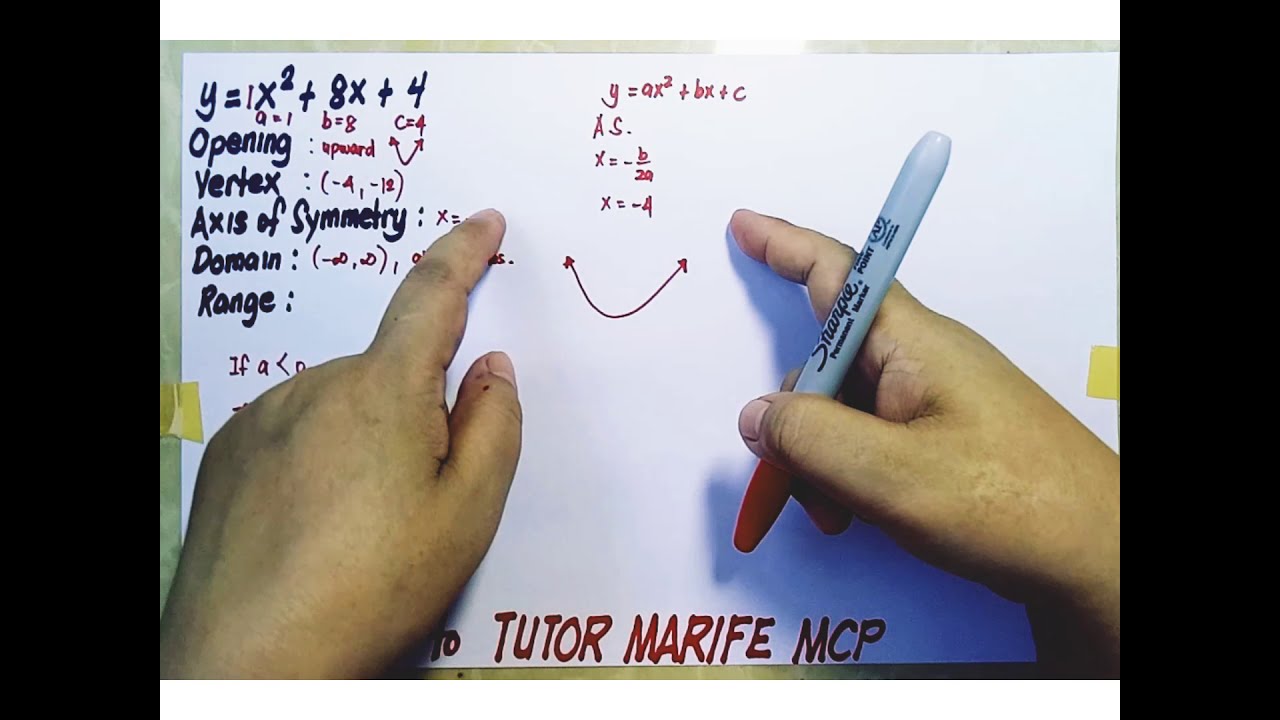 y = 1x² + 8x + 4
a = 1 b = 8 c = 4
Opening : upward
Vertex : (-4, -12)
Axis of Symmetry : x =
Domain : (-∞, ∞),
Range :
If a <
y = ax² + bx + c
A.S.
x = - b/2a
x = -4
Sharpie
Permanent Marker
POINT
AP
to TUTOR MARIFE MCP